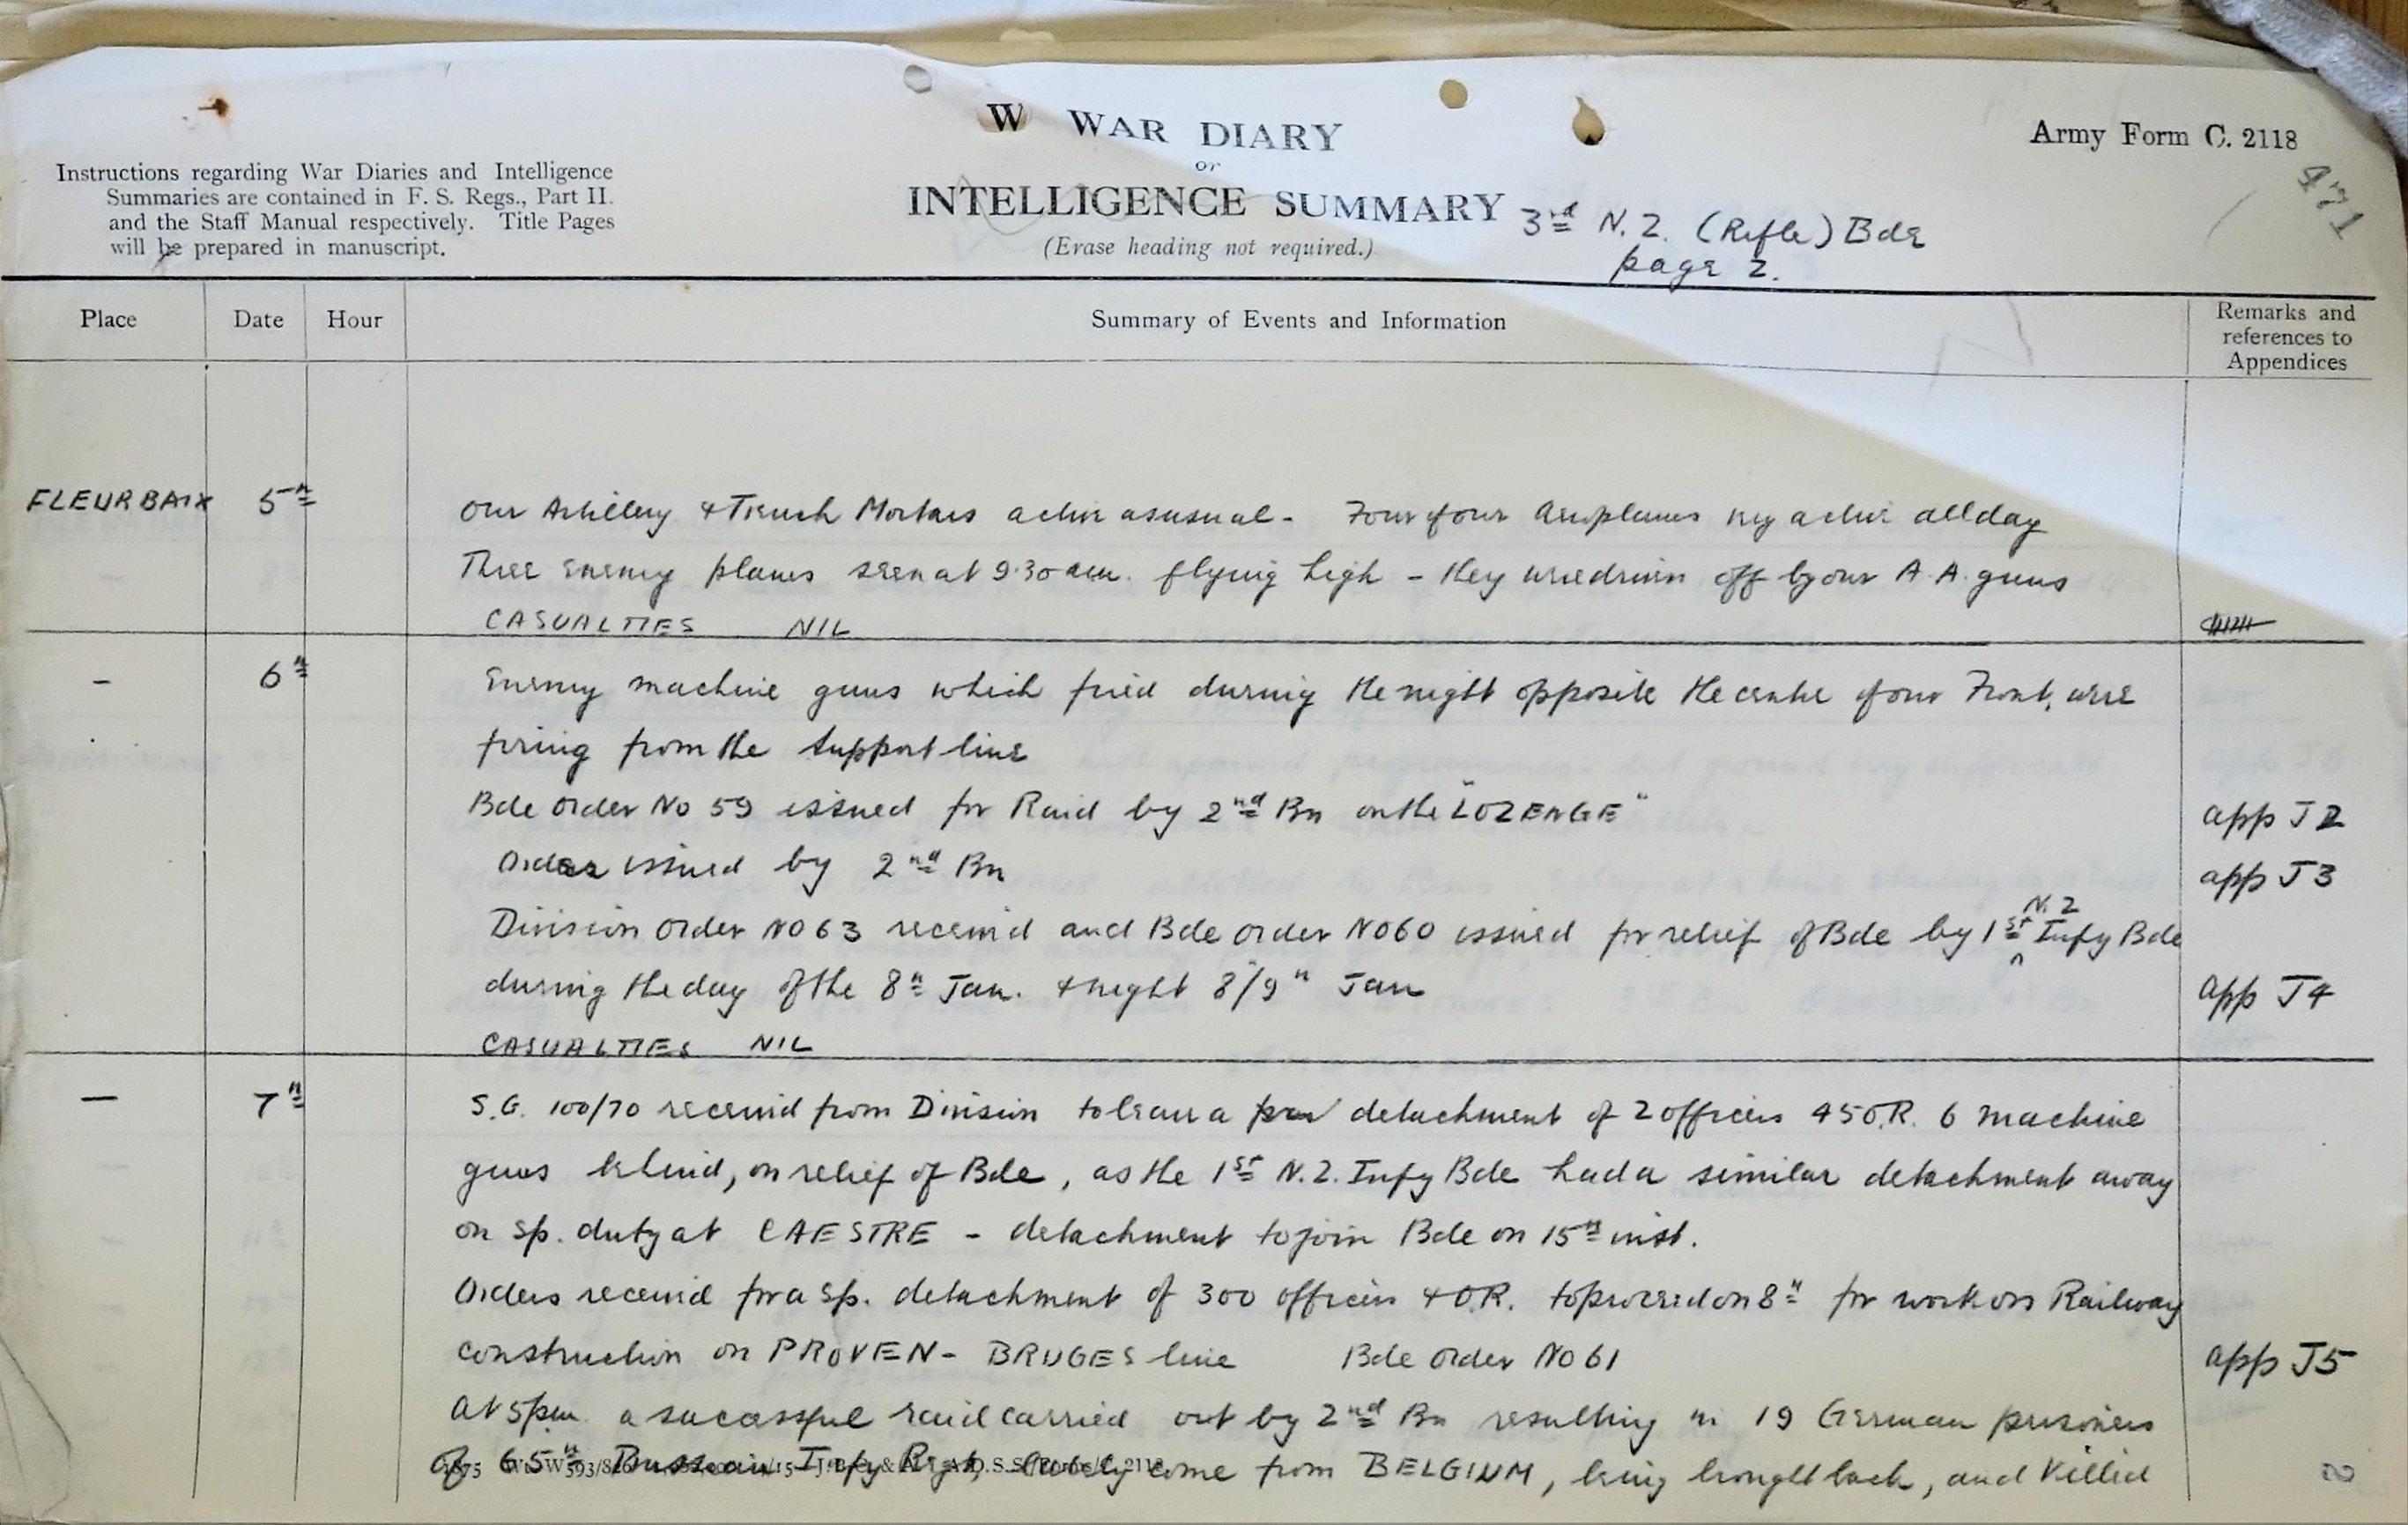 W WAR DIARY
or
INTELLIGENCE SUMMARY
(Erase heading not required.)
Army Form C. 2118
471
Instructions regarding War Diaries and Intelligence
Summaries are contained in F. S. Regs., Part II.
and the Staff Manual respectively. Title Pages
will be prepared in manuscript.
3rd N.Z. (Rifle) Bde
page 2.
Place Date Hour Summary of Events and Information Remarks and references to Appendices
FLEURBAIX 5th Our Artillery & Trench Mortars active as usual - Four of our Aeroplanes very active all day
Three Enemy planes seen at 9.30 am. flying high - they were driven off by our A.A. guns
CASUALTIES NIL
- 6th Enemy machine guns which fired during the night opposite the centre of our Front, were
firing from the support line
Bde Order No 59 issued for Raid by 2nd Bn on the "LOZENGE" app J2
Order issued by 2nd Bn app J3
Division Order No 63 received and Bde order No 60 issued for relief of Bde by 1st N.Z Infy Bde
during the day of the 8th Jan. & night 8/9th Jan app J4
CASUALTIES NIL
- 7th S.G. 100/70 received from Division to leave a detachment of 2 officers 45 O.R. 6 machine
guns behind, on relief of Bde, as the 1st N.Z. Infy Bde had a similar detachment away
on sp. duty at CAESTRE - detachment to join Bde on 15th inst.
Orders received for a sp. detachment of 300 officers & O.R. to proceed on 8th for work on Railway
construction on PROVEN - BRUGES line Bde Order No 61 app J5
At 5pm a sucessful raid carried out by 2nd Bn resulting in 19 German prisoners
of 65th Prussian Infy Regt, lately come from BELGIUM, being brought back, and Killed